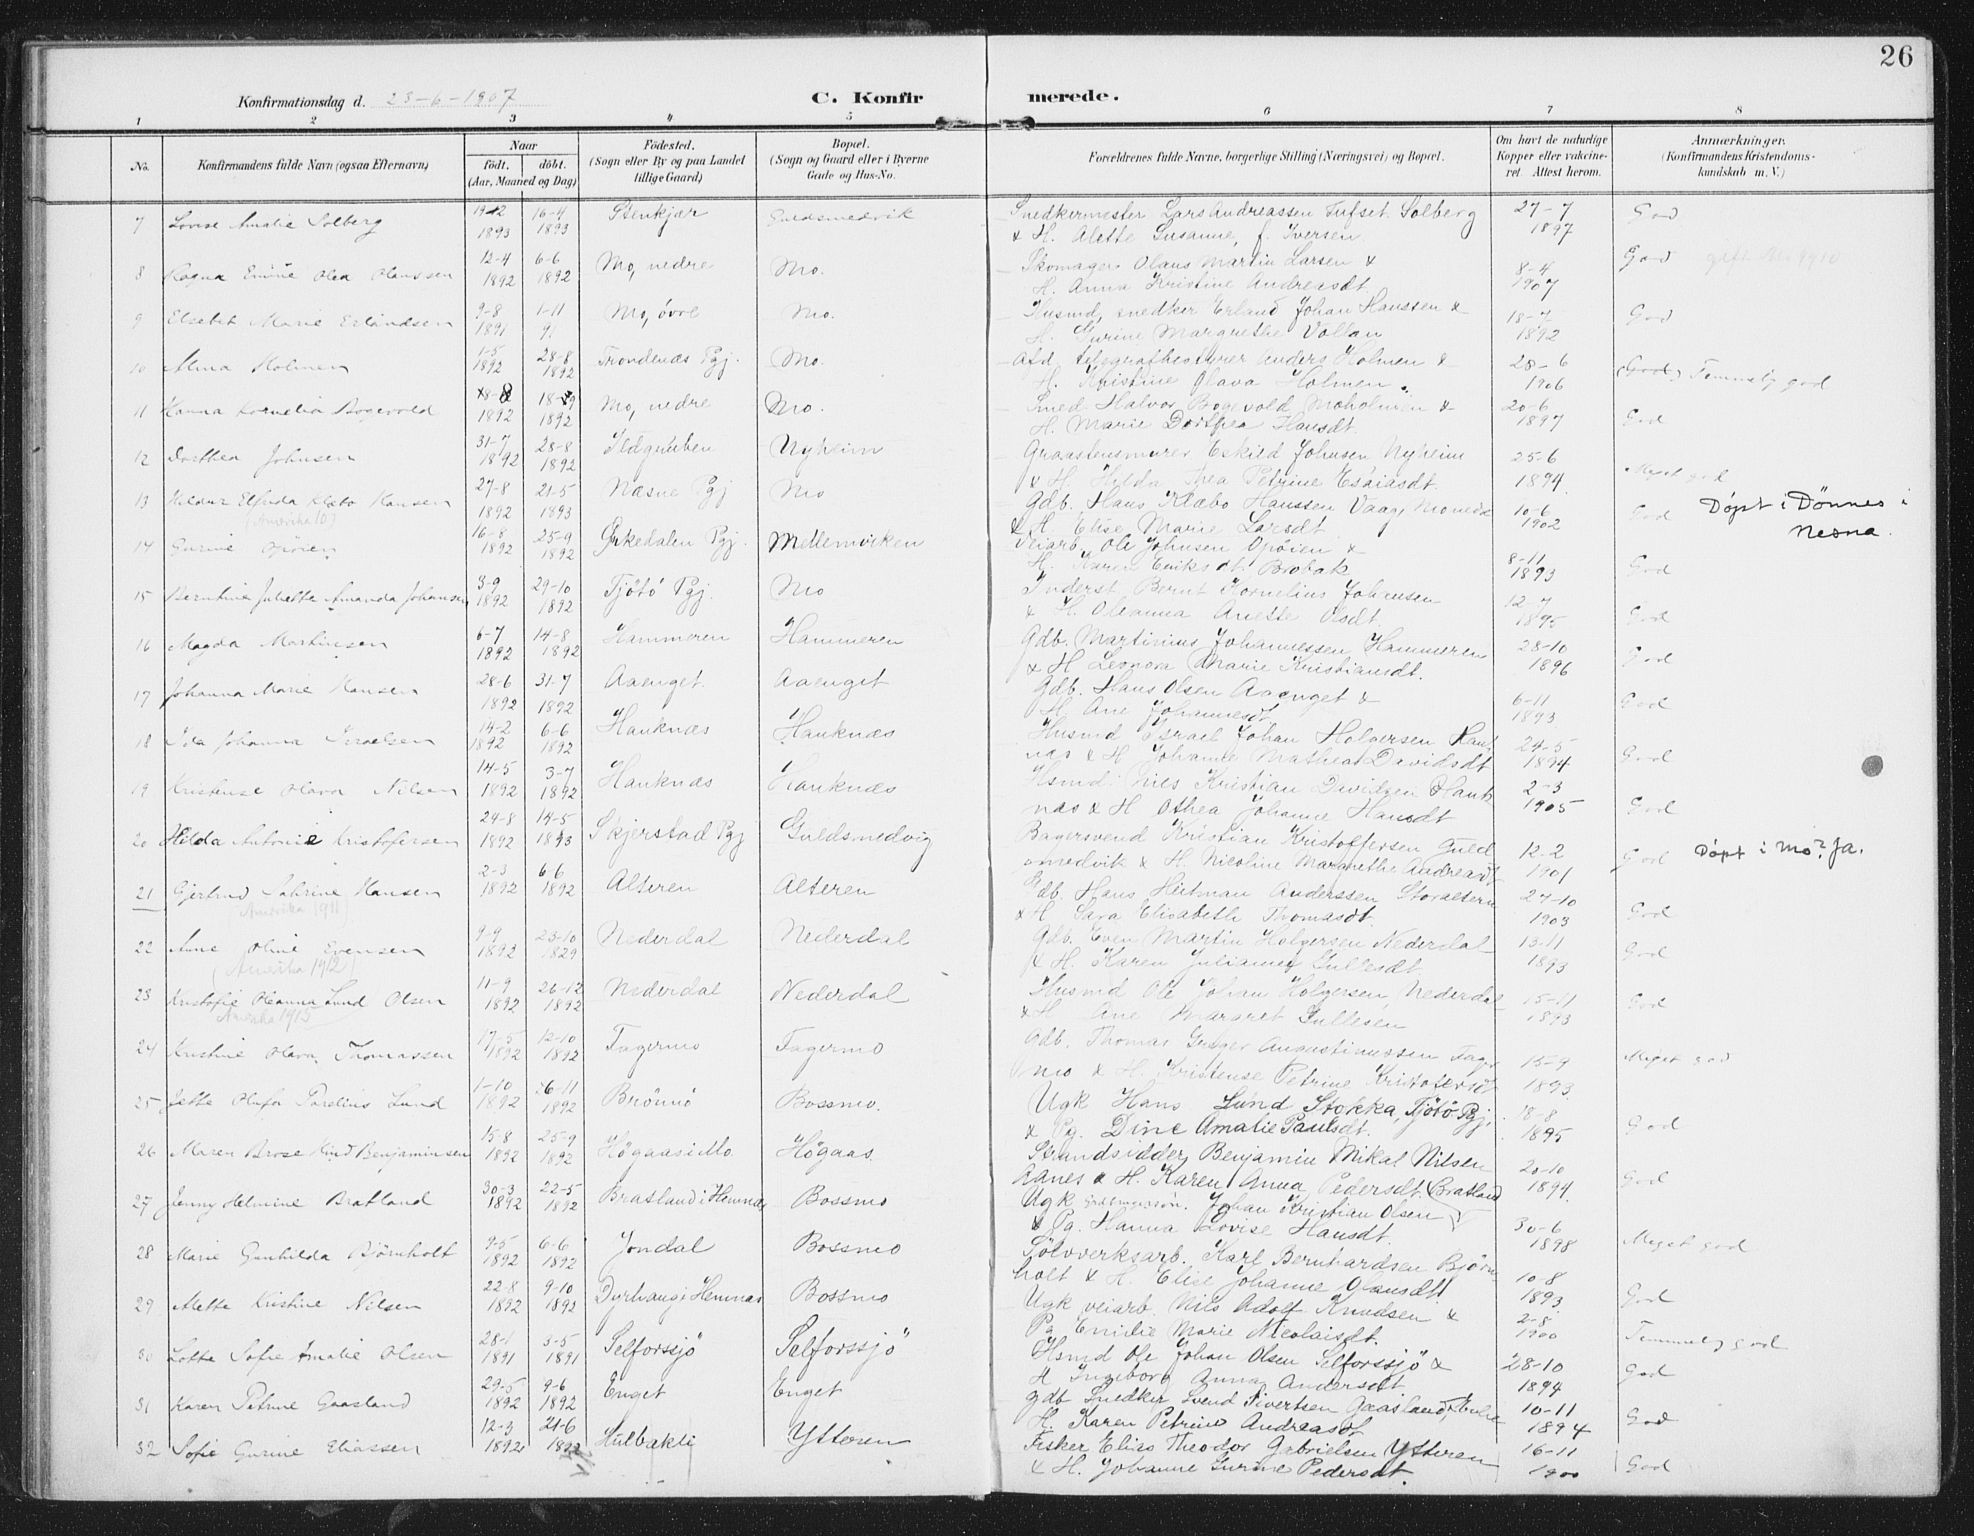 26
Konfirmationsdag d. 23-6-1907
C. Konfirmerede.
1 2 3 4 5 6 7 8
No.
Konfirmandens fulde Navn (ogsaa Efternavn)
Naar født. døbt. (Aar, Maaned og Dag)
Fødested. (Sogn eller By og paa Landet tillige Gaard)
Bopæl. (Sogn og Gaard eller i Byerne Gade og Hus-No.
Forældrenes fulde Navne, borgerlige Stilling (Næringsvei) og Bopæl.
Om havt de naturlige Kopper eller vakcineret. Attest herom.
Anmærkninger. (Konfirmandens Kristendomskundskab m. V.)
7 Lovise Amalie Solberg 1893 16-4 1893 Stenkjær Guldsmedvik Snedkermester Lars Andreassen Tufset Solberg 27-7 1897 God
& H. Alette Susanne, f. Iversen
8 Ragna Emilie Olea Olaussen 12-4 1892 6-6 1892 Mo, nedre Mo. Skomager Olaus Martin Larsen & 8-4 1907 God
H. Anna Kristine Andreasdt.
9 Elsebet Marie Erlandsen 9-8 1891 1-11 91 Mo, övre Mo. Husmd, snedker Erland Johan Hanssen & 18-7 1892 God
H. Gurine Margrethe Vollan
10 Alma Holmen 1-5 1892 28-8 1892 Trondenæs Pgj. Mo. Afd. telegrafbestyrer Anders Holmen & 28-6 1906 (God) Temmelig god
H. Kristine Olava Holmen.
11 Hanna Kornelia Bogevold 1892 1892 Mo, nedre Mo. Smed Halvor Bogevold Moholmen & 20-6 1897 God
H. Marie Dorthea Hansdt.
12 Dorthea Johnsen 31-7 1892 28-8 1892 Ildgruben Nyheim Graastensmurer Eskild Johnsen Nyheim 25-6 1894 Meget god
& H. Hilda Thea Petrine Esaiasdt.
13 Hildur Elfrida Klæbo Hansen 27-8 1892 21-5 1893 Næsne Pgj Mo Gdb. Hans Klæbo Hanssen Vaag, Monedre 10-6 1902 God Döpt i Dönnes i Nesna.
(Amerika 10)
& H. Elise Marie Larsdt
14 Gurine Opöien 16-8 1892 25-9 1892 Örkedalen Pgj. Mellemviken Veiarb. Ole Johnsen Opöien & 8-11 1893 God
H. Karen Eriksdt. Brobak
15 Berntine Juliette Amanda Johansen 3-9 1892 29-10 1892 Tjötö Pgj. Mo Inderst Bernt Kornelius Johansen 12-7 1895 God
& H. Oleanna Anette Olsdt.
16 Magda Martinsen 6-7 1892 14-8 1892 Hammeren Hammeren Gdb. Martinius Johannessen Hammeren 28-10 1896 God
& H Leonora Marie Kristiansdt.
17 Johanna Marie Hansen 28-6 1892 31-7 1892 Aaenget. Aaenget Gdb. Hans Olsen Aaenget & 6-11 1893 God
H. Ane Johannesdt
18 Ida Johanna Israelsen 14-2 1892 6-6 1892 Hauknæs Hauknæs Husmd Israel Johan Holgersen Hauknæs 24-5 1894 God
& H Johanne Mathea Davidsdt
19 Kristense Olava Nilsen 14-5 1892 3-7 1892 Hauknæs Hauknæs Hsmd. Nils Kristian Davidsen Hauknæs 2-3 1905 God
& H Othea Johanne Hansdt
20 Hilda Antonie Kristofersen 24-8 1892 14-5 1893 Skjerstad Pgj Guldsmedvig Bagersvend Kristian Kristoffersen Guldsmedvik 12-2 1901 God Döpt i Mo? Ja.
& H. Nicoline Margrethe Andreasdt
21 Gjertrud Sabrine Hansen 2-3 1892 6-6 1892 Alteren Alteren Gdb. Hans Heitman Anderssen Storalteren 27-10 1903 God
(Amerika 1911)
& H Sara Elisabeth Thomasdt.
22 Anne Oline Evensen 9-9 1892 23-10 1829 Nederdal Nederdal Gdb. Even Martin Holgersen Nederdal 13-11 1893 God
(Amerika 1912)
& H. Karen Julianne Gullesdt.
23 Kristofie Oleanna Lund Olsen 11-9 1892 26-12 1892 Nederdal Nederdal Husmd Ole Johan Holgersen, Nederdal 15-11 1893 God
Amerika 1915
& H. Ane Margret Gullesen
24 Kristine Olava Thomassen 17-5 1892 12-10 1892 Fagermo Fagermo Gdb. Thomas Greger Augustinussen Fagermo 15-9 1893 Meget god
& H. Kristense Petrine Kristofersdt
25 Jette Olufa Parelius Lund 1-10 1892 6-11 1892 Brönnö Bossmo. Ugk Hans Lund Stokka, Tjötö Pgj. 18-8 1895 God
& Pg. Dine Amalie Paulsdt.
26 Maren Brose Lind Benjaminsen 15-8 1892 25-9 1892 Högaas i Mo Högaas Strandsidder Benjamin Mikal Nilsen 20-10 1894 God
Aanes & H. Karen Anna Pedersdt. (Bratland
27 Jenny Helmine Bratland 30-3 1892 22-5 1892 Bratland i Hemnæs Bossmo Ugk Gaardmandssön. Johan Kristian Olsen 30-6 1898 Meget god
& Pg. Hanna Lovise Hansdt.
28 Marie Gunhilda Björnholt 9-5 1892 6-6 1892 Jondal Bossmo Sölvverksarb. Karl Bernhardsen Björnholt 10-8 1893 God
& H. Elise Johanne Olausdt
29 Mette Kristine Nilsen 22-8 1892 9-10 1892 Dyrhaug i Hemnæs Bossmo Ugk veiarb. Nils Adolf Knudsen & 2-8 1900 Temmelig god
Pg Emilie Marie Nicolaisdt.
30 Lotte Sofie Amalie Olsen 28-1 1891 3-5 1891 Selforssjö Selforssjö Hsmd Ole Johan Olsen Selforssjö & 28-10 1894 God
H Ingeborg Anna Andersdt
31 Karen Petrine Gaasland 29-5 1892 9-6 1892 Enget Enget Gdb Snedker Svend Sivertsen Gaasland, 10-11 1894 God
H. Karen Petrine Andreasdt
32 Sofie Gurine Eliassen 12-3 1892 21-6 1892 Hulbakli Ytteren Fisker Elias Theodor Gabrielsen Ytteren 16-11 1900 God
& H. Johanne Gurine Pedersdt.